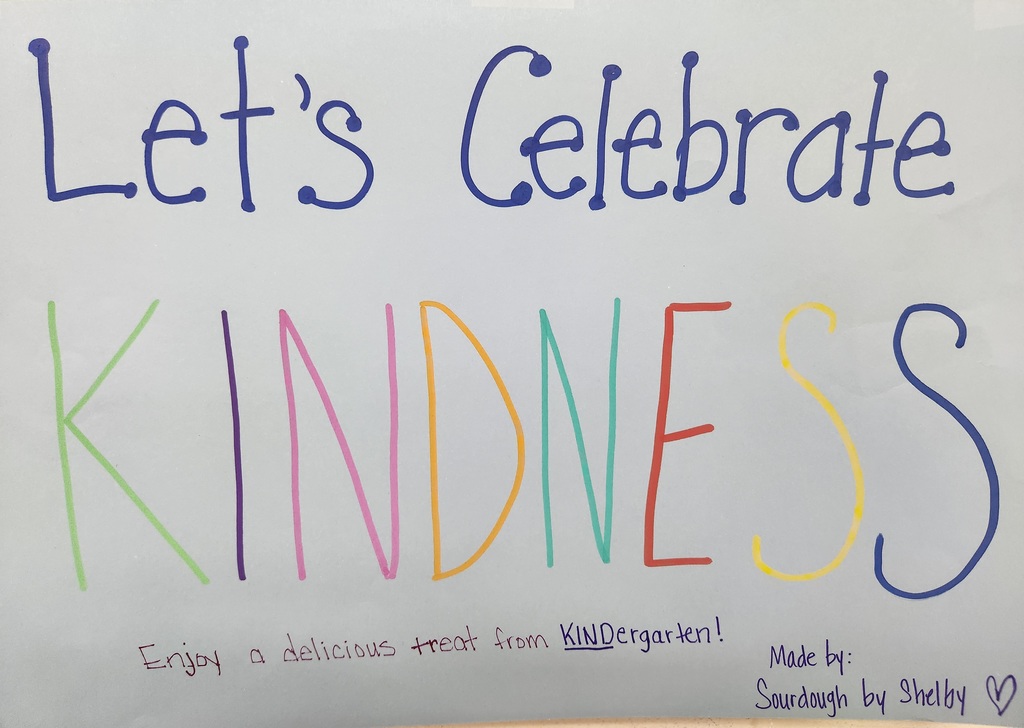 Let's Celebrate
KINDNESS
Enjoy a delicious treat from KINDergarten!
Made by:
Sourdough by Shelby ♡